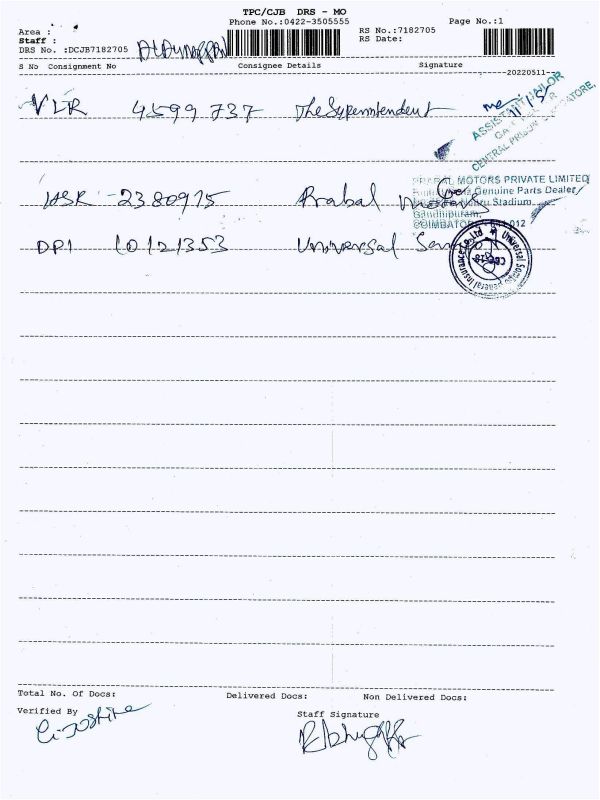 TPC/CJB DRS - MO
Phone No.:0422-3505555
Page No.:1
Area :
Staff :
DRS No. :DCJB7182705
RS No.:7182705
RS Date:
S No Consignment No Consignee Details Signature
20220511
VLR 4599 737 The Superintendent
ASSISTANT JAILOR
CENTRAL PRISON
HSR 2380975 Prabal Motors
PRABAL MOTORS PRIVATE LIMITED
Genuine Parts Dealer
Nehru Stadium
Gandhipuram,
COIMBATORE
DPI 10121353 Universal Sompo
Universal Sompo General Insurance Co. Ltd
Total No. Of Docs: Delivered Docs: Non Delivered Docs:
Verified By
Staff Signature